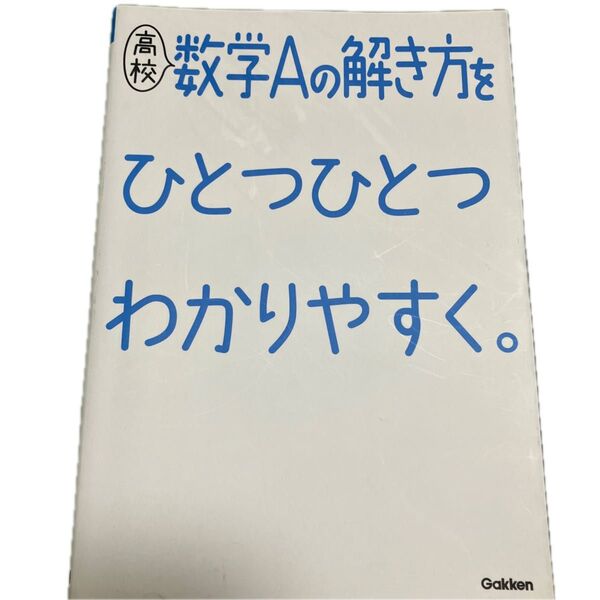 高校
数学Aの解き方を
ひとつひとつ
わかりやすく。
Gakken